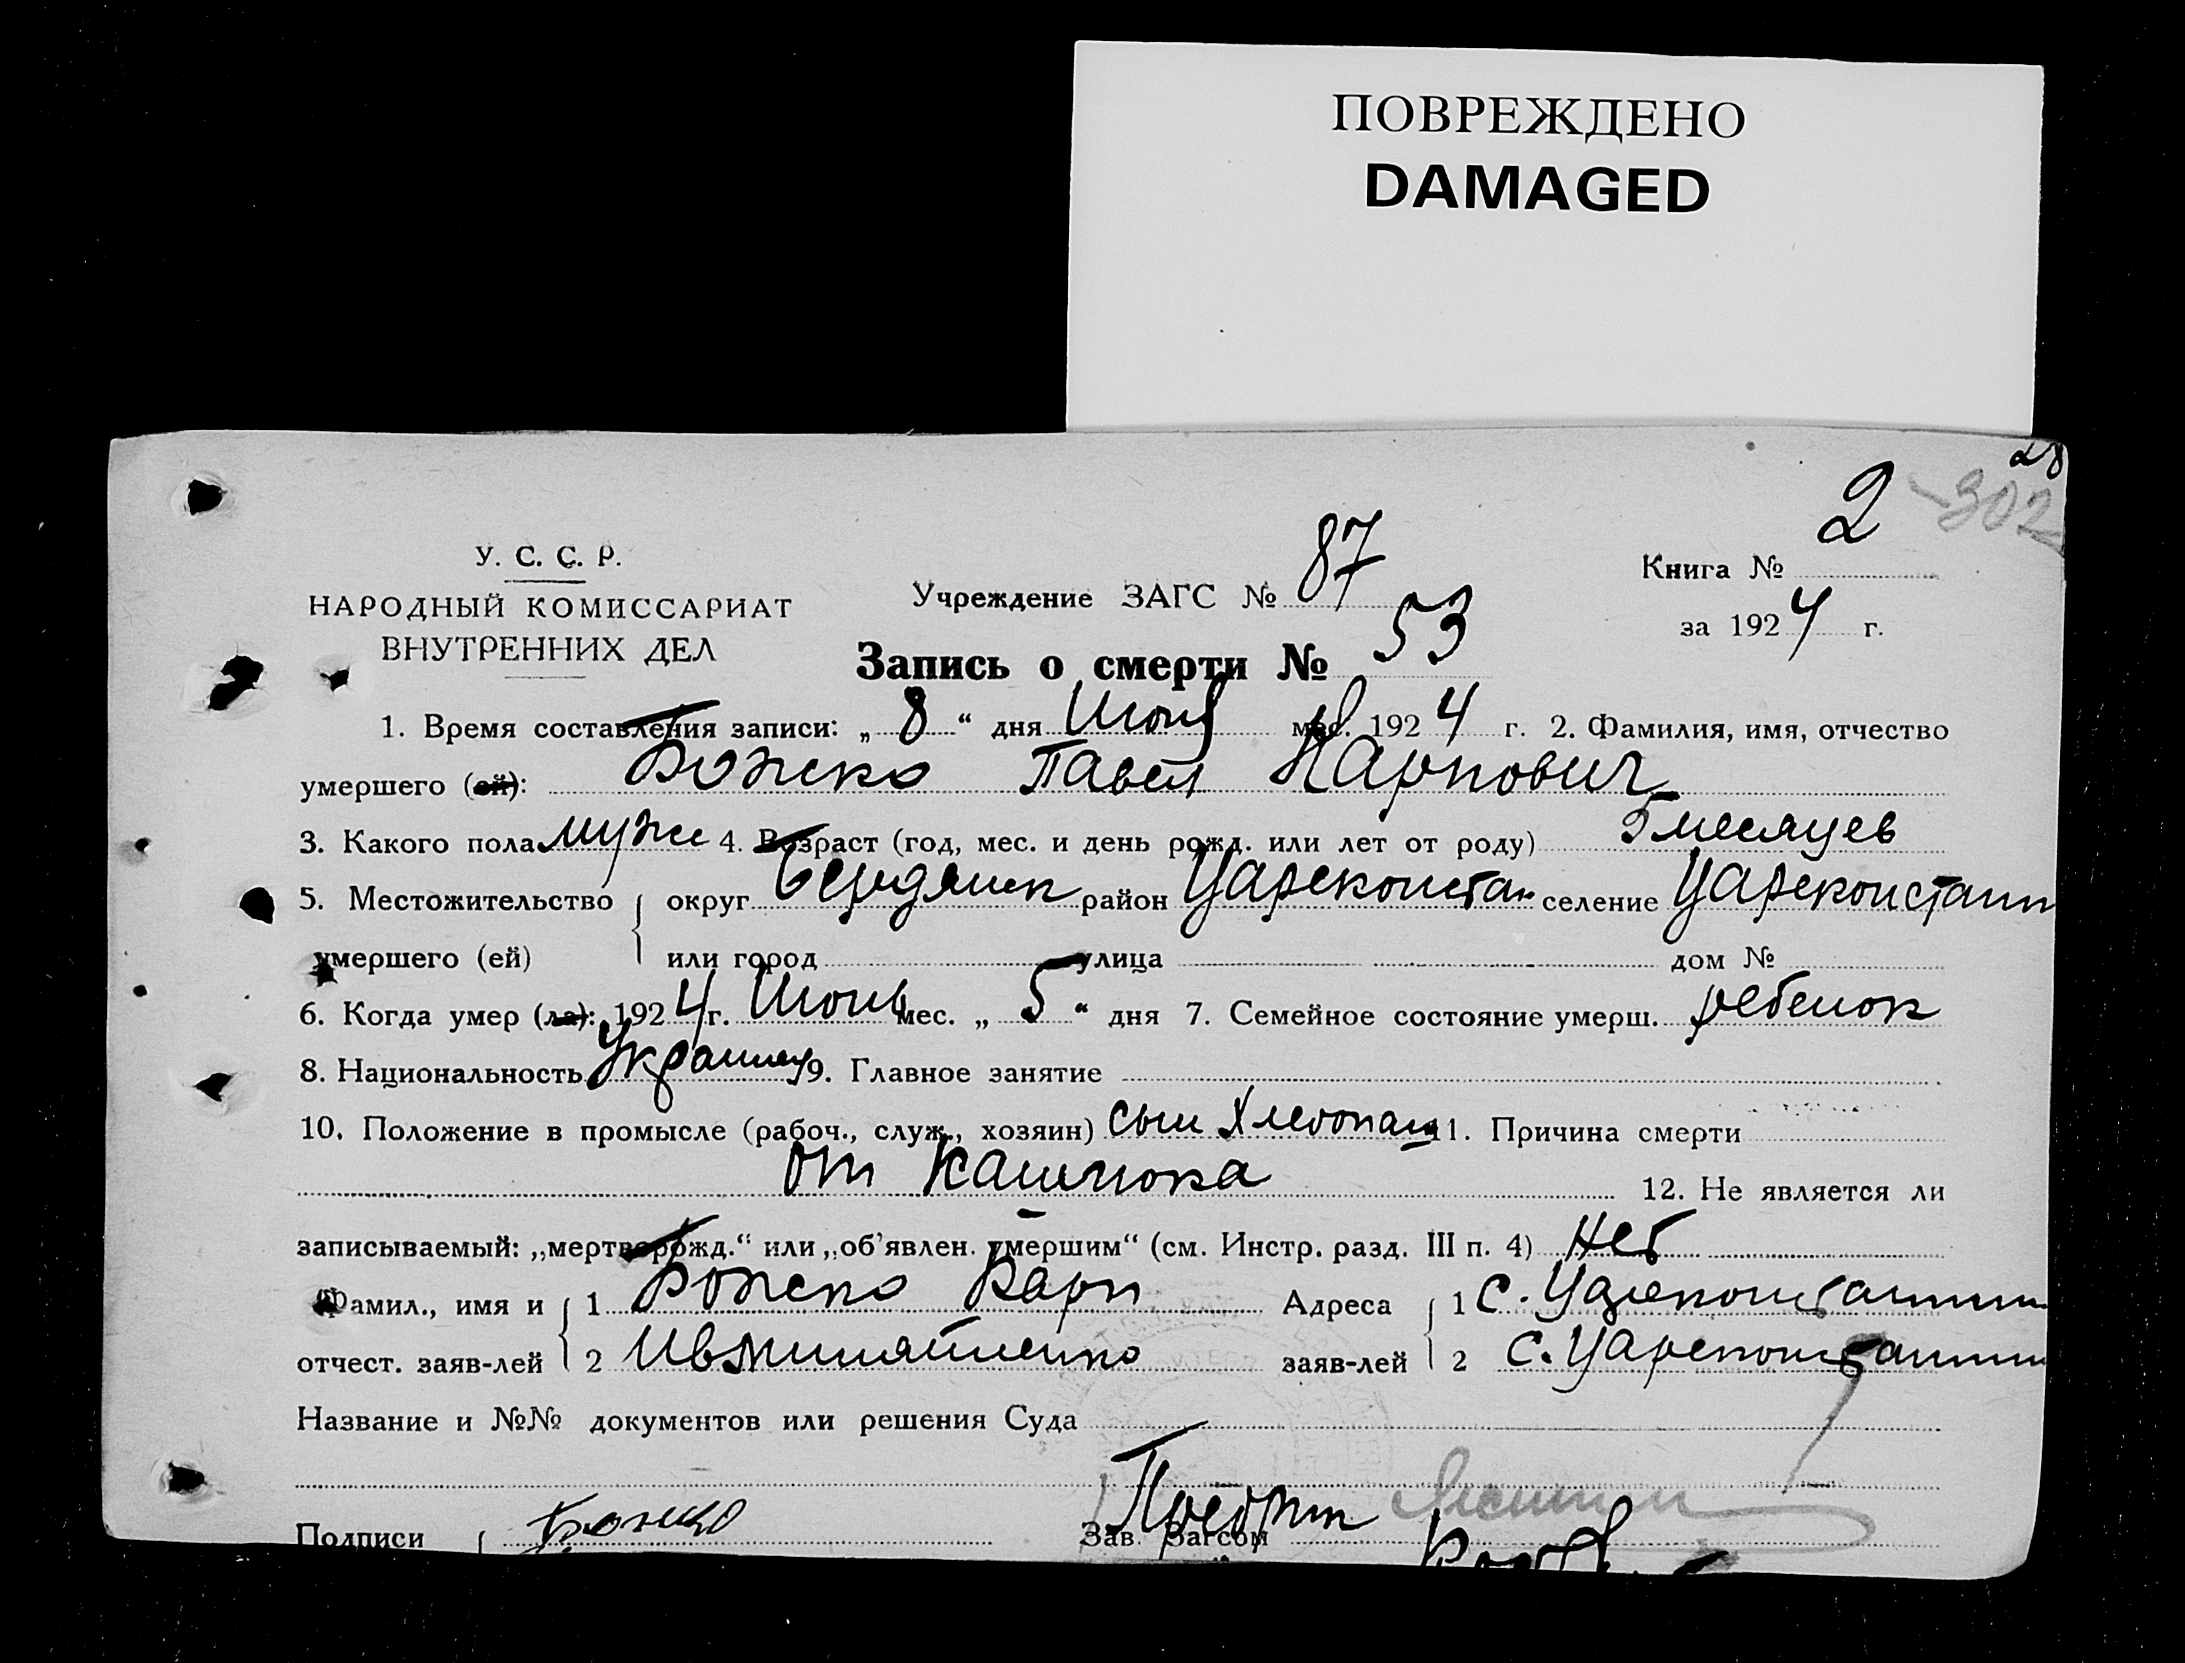 ПОВРЕЖДЕНО
DAMAGED
28
302
У. С. С. Р.
НАРОДНЫЙ КОМИССАРИАТ
ВНУТРЕННИХ ДЕЛ
Учреждение ЗАГС № 87
Книга № 2
за 1924 г.
Запись о смерти № 53
1. Время составления записи: „ 8 “ дня Июня мес. 1924 г. 2. Фамилия, имя, отчество
умершего (ей): Божко Павел Карпович
3. Какого пола муже 4. Возраст (год, мес. и день рожд. или лет от роду) 5 месяцев
5. Местожительство округ Бердянск район Царекостан селение Цареконстант
умершего (ей) или город улица дом №
6. Когда умер (ла): 1924 г. Июнь мес. „ 5 “ дня 7. Семейное состояние умерш. ребенок
8. Национальность Украинец 9. Главное занятие
10. Положение в промысле (рабоч., служ., хозяин) сын Хлебопаш 11. Причина смерти
от Кашлюка 12. Не является ли
записываемый: „мертворожд.“ или „об’явлен. умершим“ (см. Инстр. разд. III п. 4) Нет
Фамил., имя и 1 Божко Карп Адреса 1 с. Цареконстантин
отчест. заяв-лей 2 заяв-лей 2 с. Цареконстантин
Название и №№ документов или решения Суда
Подписи Божко Зав. Загсом